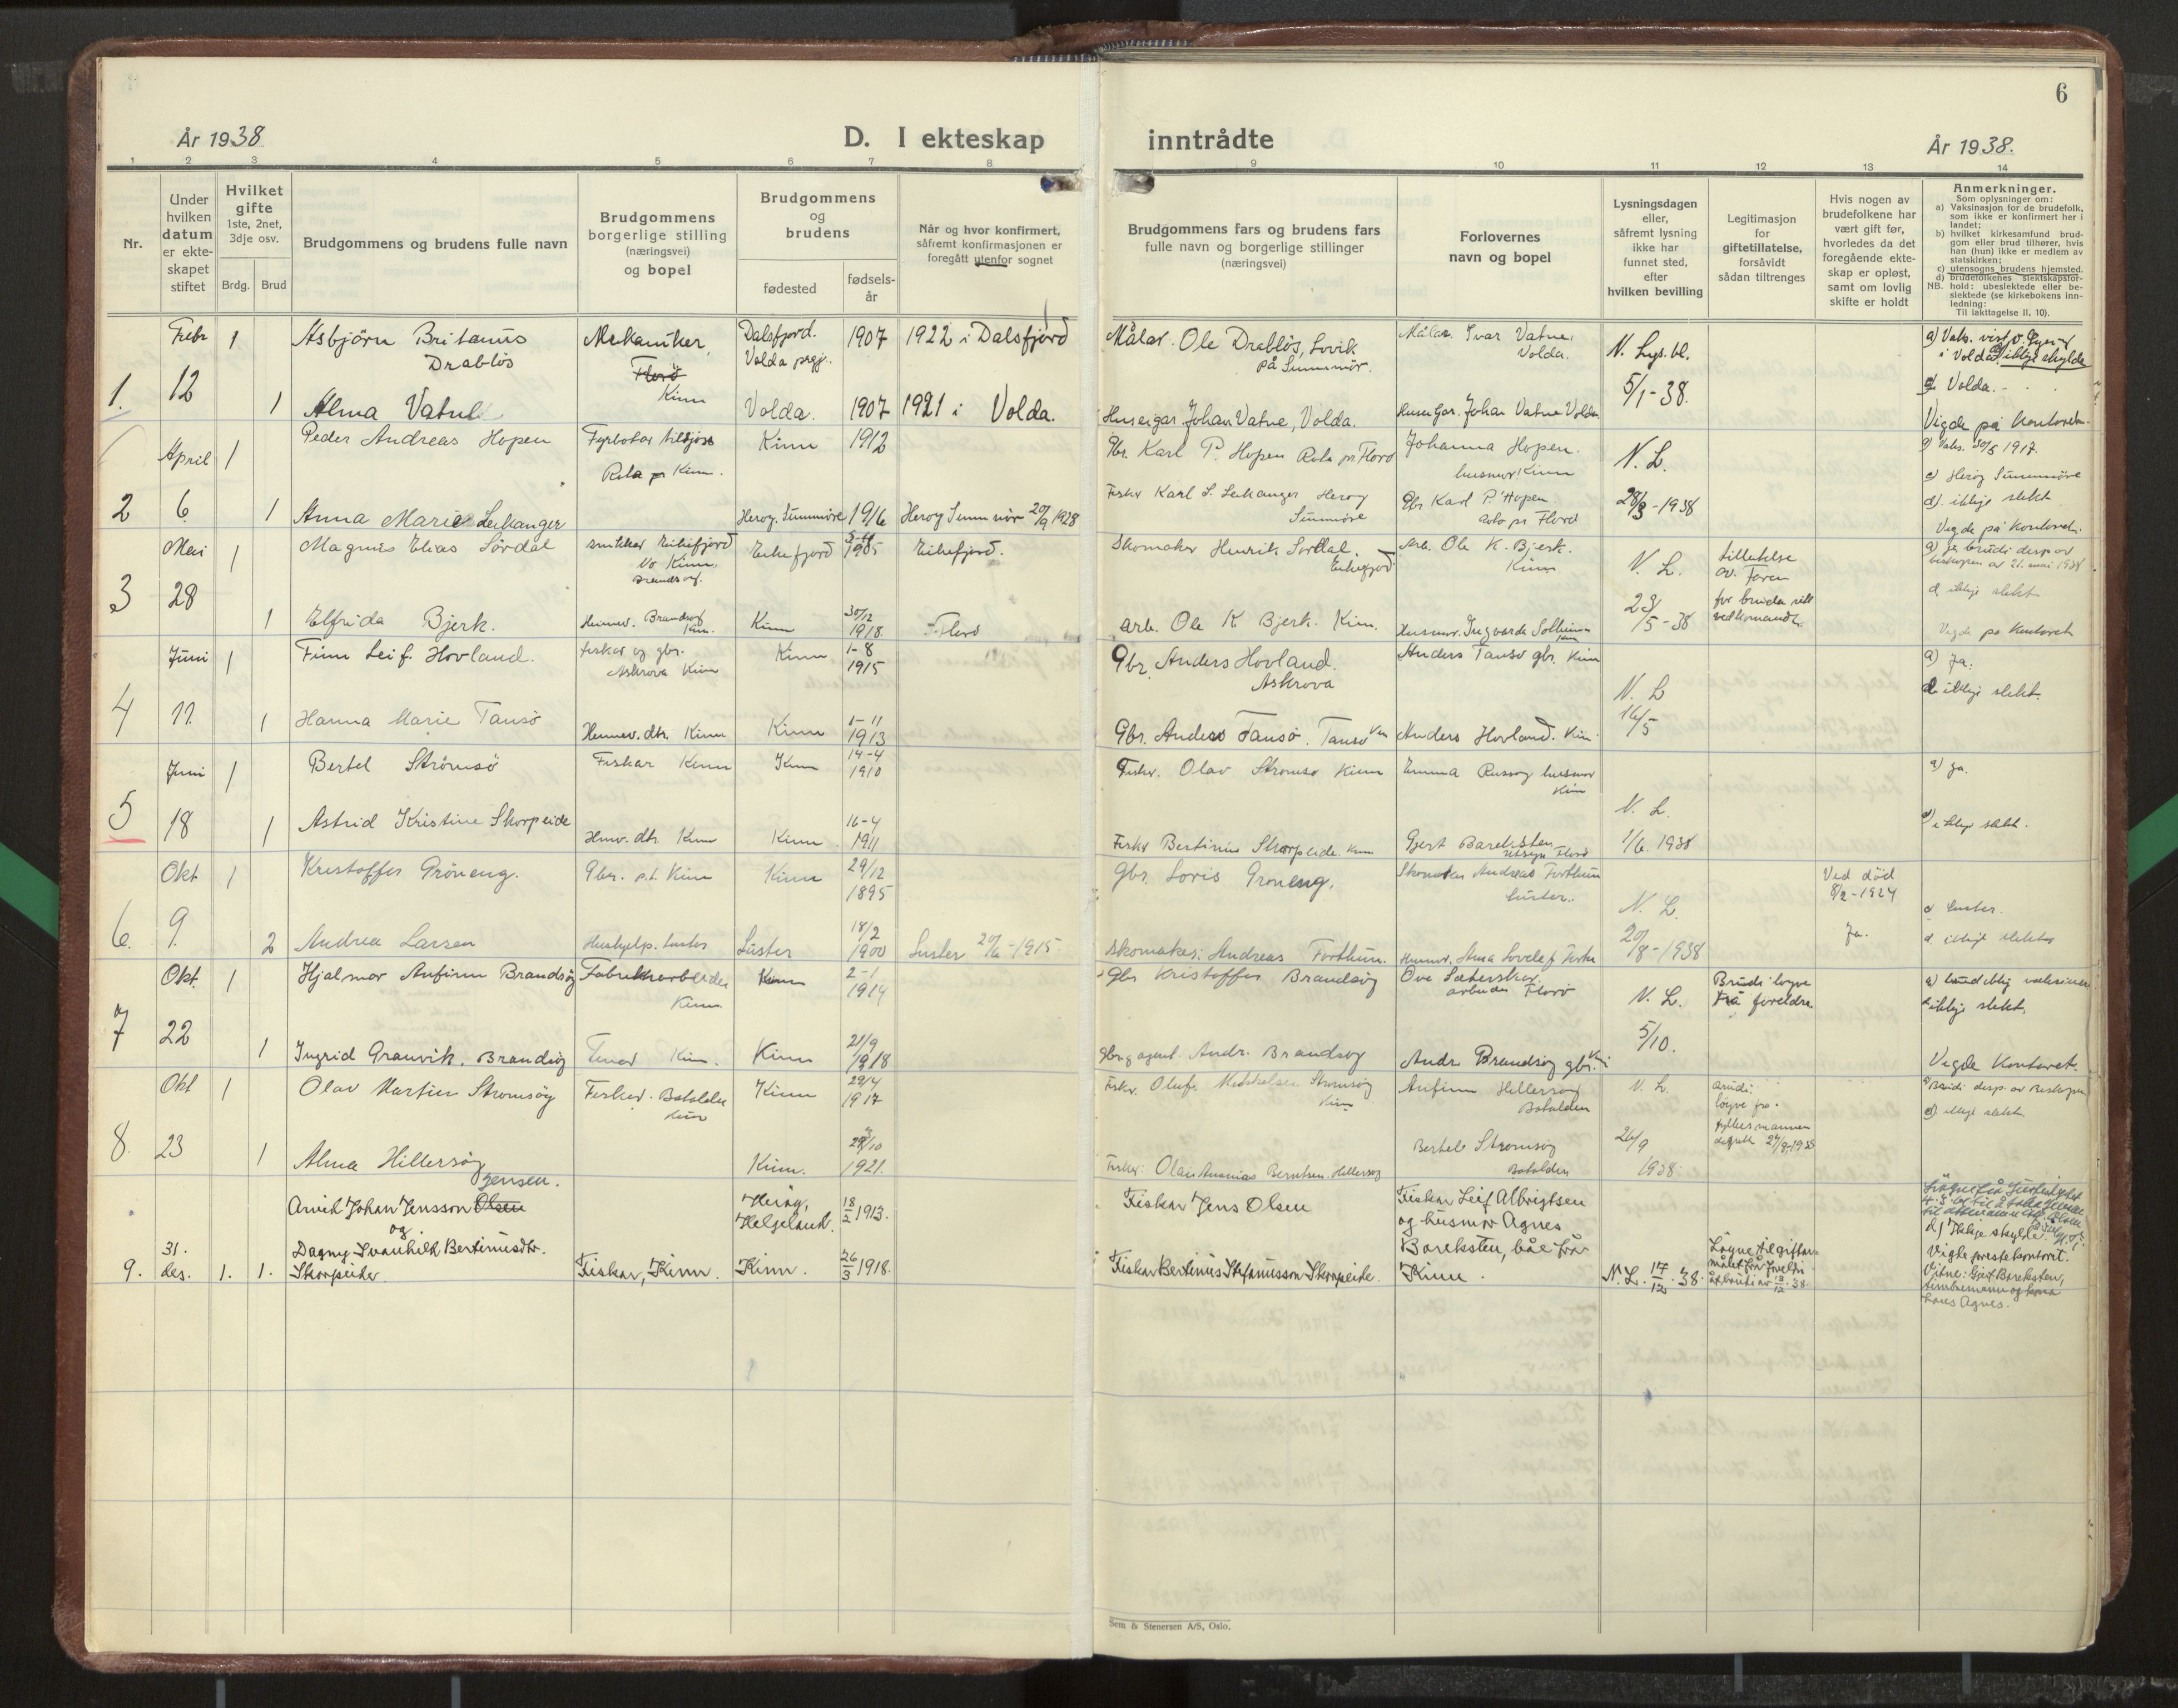 6
År 1938
D. I ekteskap
inntrådte
År 1938.
1 2 3 4 5 6 7 8 9 10 11 12 13 14
Nr.
Under
hvilken
datum
er ekte-
skapet
stiftet
Hvilket
gifte
1ste, 2net,
3dje osv.
Brdg. Brud
Brudgommens og brudens fulle navn
Brudgommens
borgerlige stilling
(næringsvei)
og bopel
Brudgommens
og
brudens
fødested
fødsels-
år
Når og hvor konfirmert,
såfremt konfirmasjonen er
foregått utenfor sognet
Brudgommens fars og brudens fars
fulle navn og borgerlige stillinger
(næringsvei)
Forlovernes
navn og bopel
Lysningsdagen
eller,
såfremt lysning
ikke har
funnet sted,
efter
hvilken bevilling
Legitimasjon
for
giftetillatelse,
forsåvidt
sådan tiltrenges
Hvis nogen av
brudefolkene har
vært gift før,
hvorledes da det
foregående ekte-
skap er opløst,
samt om lovlig
skifte er holdt
Anmerkninger.
Som oplysninger om:
a) Vaksinasjon for de brudefolk,
som ikke er konfirmert her i
landet;
b) hvilket kirkesamfund brud-
gom eller brud tilhører, hvis
han (hun) ikke er medlem av
statskirken;
c) utensogns brudens hjemsted.
d) brudefolkenes slektskapsfor-
NB. hold: ubeslektede eller be-
slektede (se kirkebokens inn-
ledning:
Til iakttagelse II, 10).
1. Febr 12 1
Asbjörn Britanus
Drablös
Mekaniker,
Florö
Kinn
Dalsfjord.
Volda prgj.
1907
1922 i Dalsfjord
Målar. Ole Drablös, Lovik
på Sunnmör.
Målar. Ivar Vatne,
Volda.
N. Lys. bl.
5/1-38.
1 Alma Vatne
Volda. 1907 1921 i Volda.
Huseigar Johan Vatne, Volda.
Huseigar. Johan Vatne Volda
Volda.
Vigde på kontoret.
2 April 6. 1
Peder Andreas Hopen
Kinn 1912
Gbr. Karl P. Hopen
Johanna Hopen.
husmor Kinn
N. L.
28/3-1938
a) Vaks. 30/5 1917.
1 Anna Marie Leikanger
Heröy. Sunnmöre 1916 Heröy Sunnmör 20/9 1928
Fisker Karl S. Leikanger Heröy
Sunnmöre
Gbr Karl P. Hopen
c) Heröy Sunnmöre
d) ikkje slekt
Vigde på kontoret.
3 Mai 28 1
Magnus Elias Sördal
snikkar Eikefjord
Eikefjord 1905 Eikefjord.
Skomaker Henrik Sørdal.
Eikefjord
Arb. Ole K. Bjerk.
Kinn
N. L.
23/5-38
tillatelse
av Faren
for bruda
vedkomande.
1 Elfrida Bjerk.
Kinn 30/12 1918. Florö
arb. Ole K Bjerk. Kinn.
d. ikkje slekt
Vigde på Kontoret
4 Juni 11. 1
Finn Leif. Hovland.
fiskar og gbr.
Askrova Kinn
Kinn 1-8 1915
Gbr. Anders Hovland.
Askrova
Anders Tansø gbr. Kinn
N. L
16/5
a) Ja.
d. ikkje slekt.
1 Hanna Marie Tansö
Heimev. dtr. Kinn
Kinn 1-11 1913
Gbr. Anders Tansø. Tansø
Anders Hovland. Kinn.
5 Juni 18 1
Bertel Strömsö
Fiskar Kinn
Kinn 14-4 1910
Fisker. Olav Strömsø Kinn
husmor
Kinn
N. L.
1/6. 1938
a) ja.
1 Astrid Kristine Skorpeide
Hmv. dtr. Kinn
Kinn 16-4 1911
Fisker Bertinius Skorpeide. Kinn
d) ikkje slekt.
6. Okt 9. 1
Kristoffer Gröneng.
Gbr. p.t. Kinn
Kinn 29/12 1895
Gbr.
Gröneng.
Skomaker Andreas Forthun
Luster.
N. L.
20/8-1938
Ved død
8/2-1924
Ja.
2 Andrea Larsen
Hushjelp. Luster
Luster 18/2 1900
Skomaker: Andreas Forthun.
c Luster.
d. ikkje slekt
7 Okt. 22 1
Hjalmar Anfinn Brandsöy
Fabrikkarbeider
Kinn.
Kinn 2-1 1914
Gbr Kristoffer Brandsöy
Florö
N. L.
5/10.
Brudi løyve
frå foreldra
d ikkje slekt.
1 Ingrid Granvik. Brandsöy
Kinn 21/9 1918
Andr. Brandsöy
Andr Brandsöy gbr. Kinn
Vigde Kontoret.
8. Okt 23 1
Olav Martin Strömsöy
Fisker. Batalden
Kinn
Kinn 29/4 1917
Fisker. Oluf
Strömsöy
Kinn
Anfinn Hillersöy
Batalden
N. L.
26/9
1938.
brudi:
løyve fra
fylkesmannen
a) Brudi disp. av Biskopen
d) ikkje slekt
1 Alma Hillersöy
Kinn. 1921.
Fisker: Olai
Berntsen. Hillersöy
Bertel Strömsöy
Batalden
9. 31. des. 1. 1.
Jensen.
Arvid Johan Jensson Olsen
og
Dagny Svanhild Bertinusdtr.
Skorpeide.
Fiskar, Kinn.
Heröy,
Helgeland. 18/2 1913.
Kinn. 26/3 1918.
Fiskar Jens Olsen
Fiskar Bertinus Stefanusson Skorpeide.
Fiskar Leif Albrigtsen
og husmor Agnes
Bareksten, båe frå
Kinn.
N. L. 17/12. 38.
Löyve til giftar-
målet frå foreldri
åt brudi av 13/12 38.
d) Ikkje skylde.
Vigde prestekontoret.
Vitne: Gjert Bareksten,
tømbremann og kona
hans Agnes.
Sem & Stenersen A/S, Oslo.